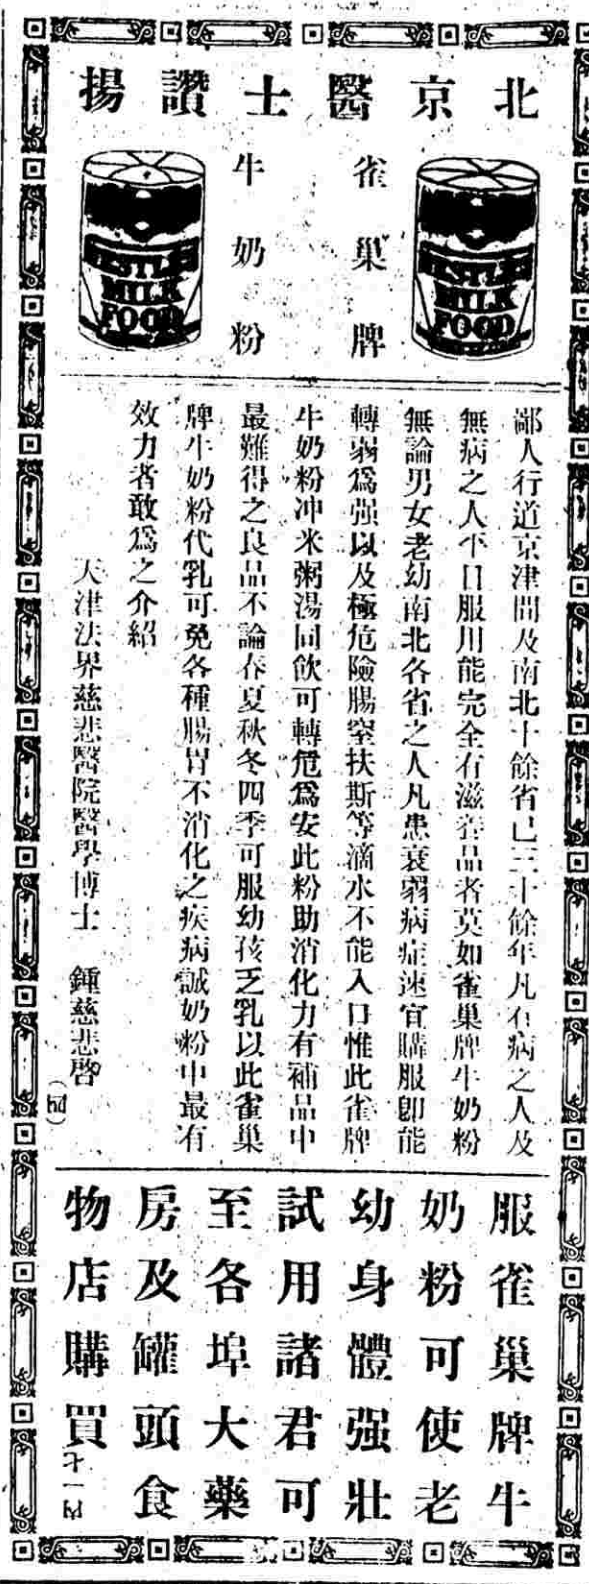 北京醫士讚揚
雀巢牌
牛奶粉
NESTLÉ'S
MILK
FOOD
NESTLÉ'S
MILK
FOOD
鄙人行道京津間及南北十餘省已三十餘年凡有病之人及
無病之人平日服用能完全有滋養品者莫如雀巢牌牛奶粉
無論男女老幼南北各省之人凡患衰弱病症速宜購服卽能
轉弱爲强以及極危險腸窒扶斯等滴水不能入口惟此雀牌
牛奶粉冲米粥湯同飲可轉危爲安此粉助消化力有補品中
最難得之良品不論春夏秋冬四季可服幼孩乏乳以此雀巢
牌牛奶粉代乳可免各種腸胃不消化之疾病誠奶粉中最有
效力者敢爲之介紹
天津法界慈悲醫院醫學博士 鍾慈悲啓
服雀巢牌牛
奶粉可使老
幼身體强壯
試用諸君可
至各埠大藥
房及罐頭食
物店購買
內一七